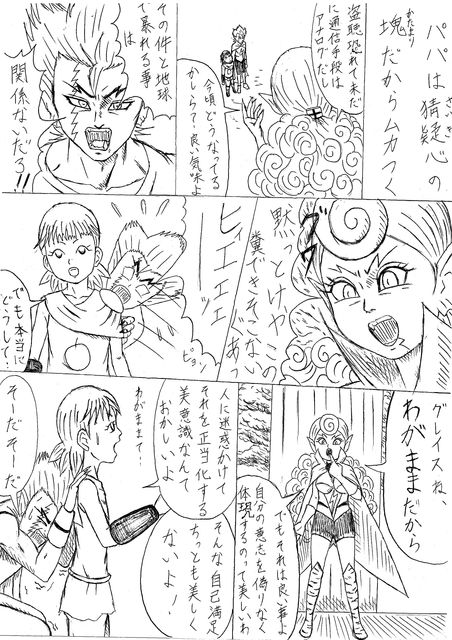 パパは猜疑心の
さいぎ
塊だからムカつく
かたまり
盗聴恐れて未だ
に通信手段は
アナログだし
今頃どうなってる
かしらて!良い気味よ
その件と地球
で暴れる事
は
関係ないだろ!!
黙っとけやこの
糞できそこない
があっ
ビエエエーッ
ピョン
でも本当に
どうして?
グレイスね、
わがままだから
でもそれは良い事よ
自分の意志を偽りなく
体現するのって美しいわ
わがままて!
人に迷惑かけて
それを正当化する
美意識なんて
おかしいよ
そんな自己満足
ちっとも美しく
ないよ!
そーだそーだ